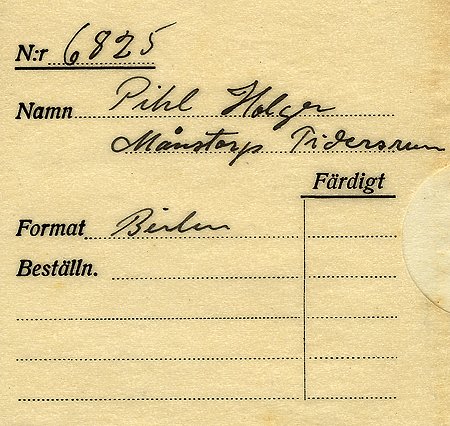 N:r 6825
Namn Pihl Holger
Månstorp Tidersrum
Färdigt
Format Bilen
Beställn.